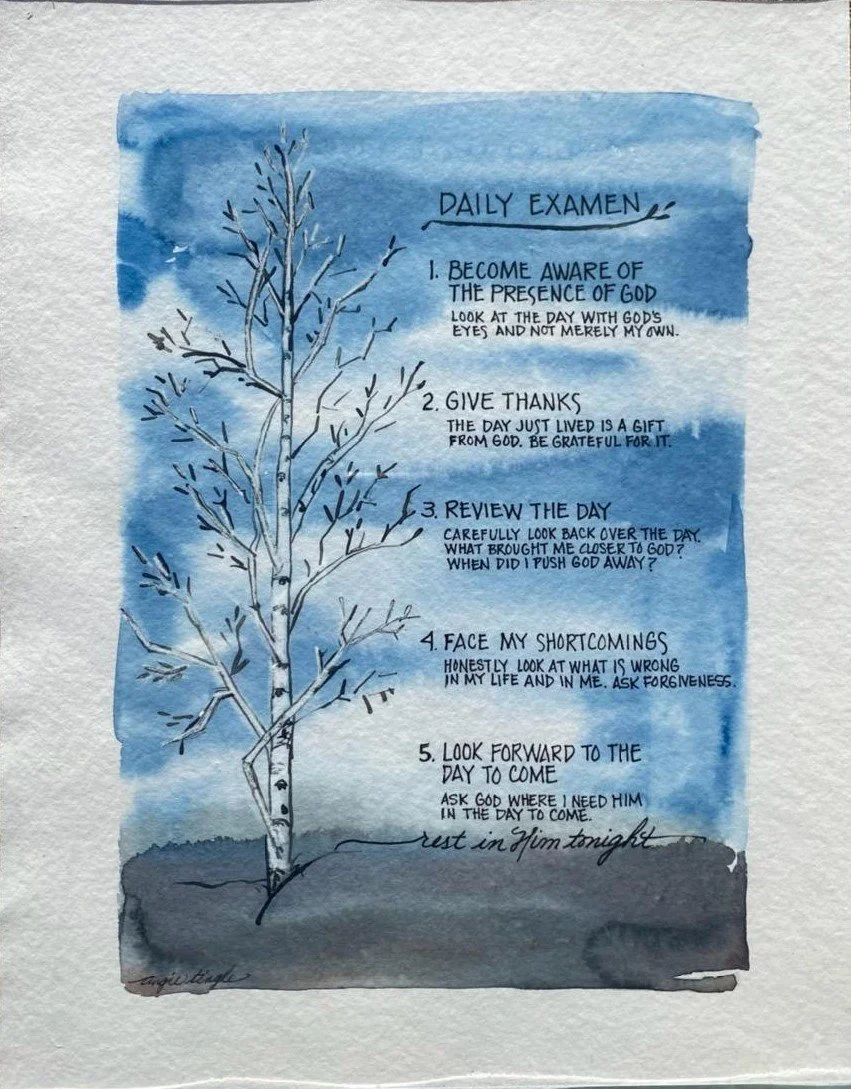 DAILY EXAMEN
1. BECOME AWARE OF
THE PRESENCE OF GOD
LOOK AT THE DAY WITH GOD'S
EYES AND NOT MERELY MY OWN.
2. GIVE THANKS
THE DAY JUST LIVED IS A GIFT
FROM GOD. BE GRATEFUL FOR IT.
3. REVIEW THE DAY
CAREFULLY LOOK BACK OVER THE DAY.
WHAT BROUGHT ME CLOSER TO GOD?
WHEN DID I PUSH GOD AWAY?
4. FACE MY SHORTCOMINGS
HONESTLY LOOK AT WHAT IS WRONG
IN MY LIFE AND IN ME. ASK FORGIVENESS.
5. LOOK FORWARD TO THE
DAY TO COME
ASK GOD WHERE I NEED HIM
IN THE DAY TO COME.
rest in Him tonight
angie tingle